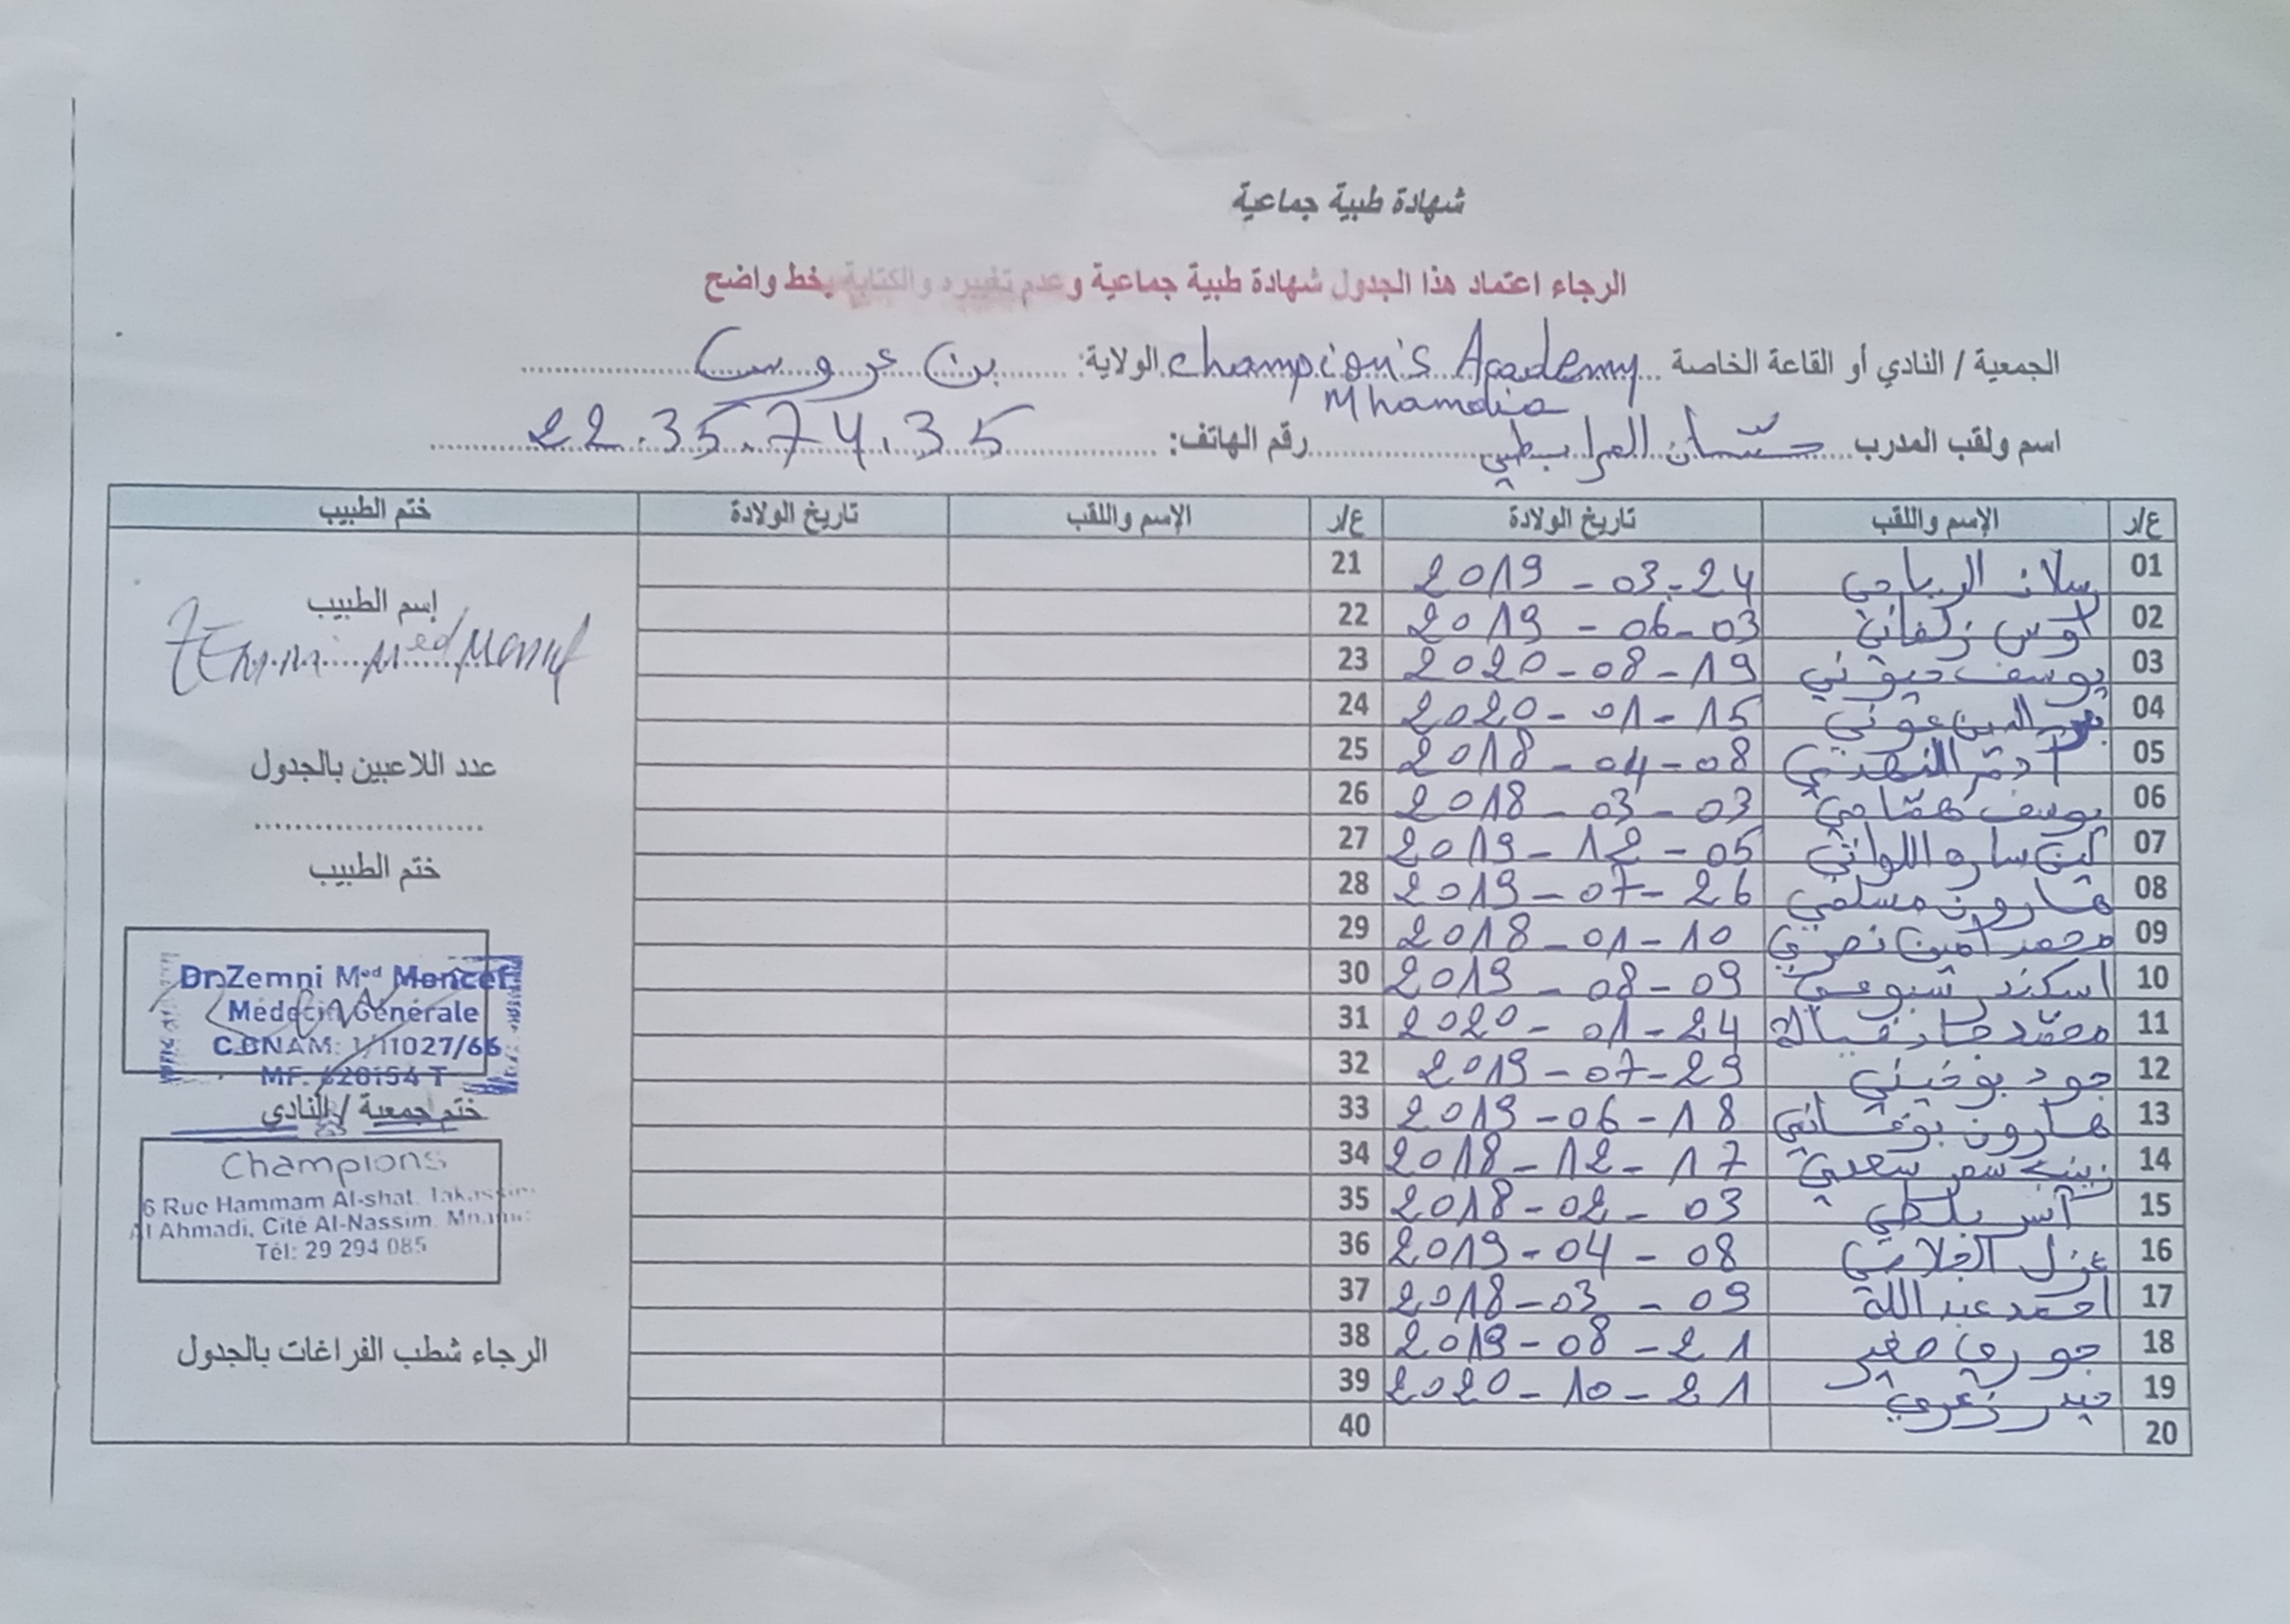 شهادة طبية جماعية
الرجاء اعتماد هذا الجدول شهادة طبية جماعية وعدم تغييره والكتابة بخط واضح
الجمعية / النادي أو القاعة الخاصة champion's Academy Mhamdia الولاية: بن عروس
اسم ولقب المدرب حسّان المرابطي رقم الهاتف: 22.35.74.35
ع/ر الإسم واللقب تاريخ الولادة ع/ر الإسم واللقب تاريخ الولادة ختم الطبيب
01 الرياحي 2019-03-24 21
02 أوس 2019-06-03 22
03 يوسف 2020-08-19 23
04 الدين عوني 2020-01-15 24
05 آدم 2018-04-08 25
06 يوسف همّامي 2018-03-03 26
07 لين سارة اللواتي 2019-12-05 27
08 هارون مسلمي 2019-07-26 28
09 محمد أمين نصري 2018-01-10 29
10 اسكندر 2019-08-09 30
11 محمّد 2020-01-24 31
12 جود 2019-07-29 32
13 هارون 2019-06-18 33
14 زينب سعيدي 2018-12-17 34
15 آنس 2018-02-03 35
16 2019-04-08 36
17 احمد عبد الله 2018-03-09 37
18 جوري صغير 2019-08-21 38
19 2020-10-21 39
20 40
إسم الطبيب
Zemni Med Moncef
عدد اللاعبين بالجدول
ختم الطبيب
Dr.Zemni Med Moncef
Médecin Générale
MF: 620154 T
ختم جمعية / النادي
Champions
6 Rue Hammam Al-shat,
Al Ahmadi, Cité Al-Nassim,
Tél: 29 294 085
الرجاء شطب الفراغات بالجدول